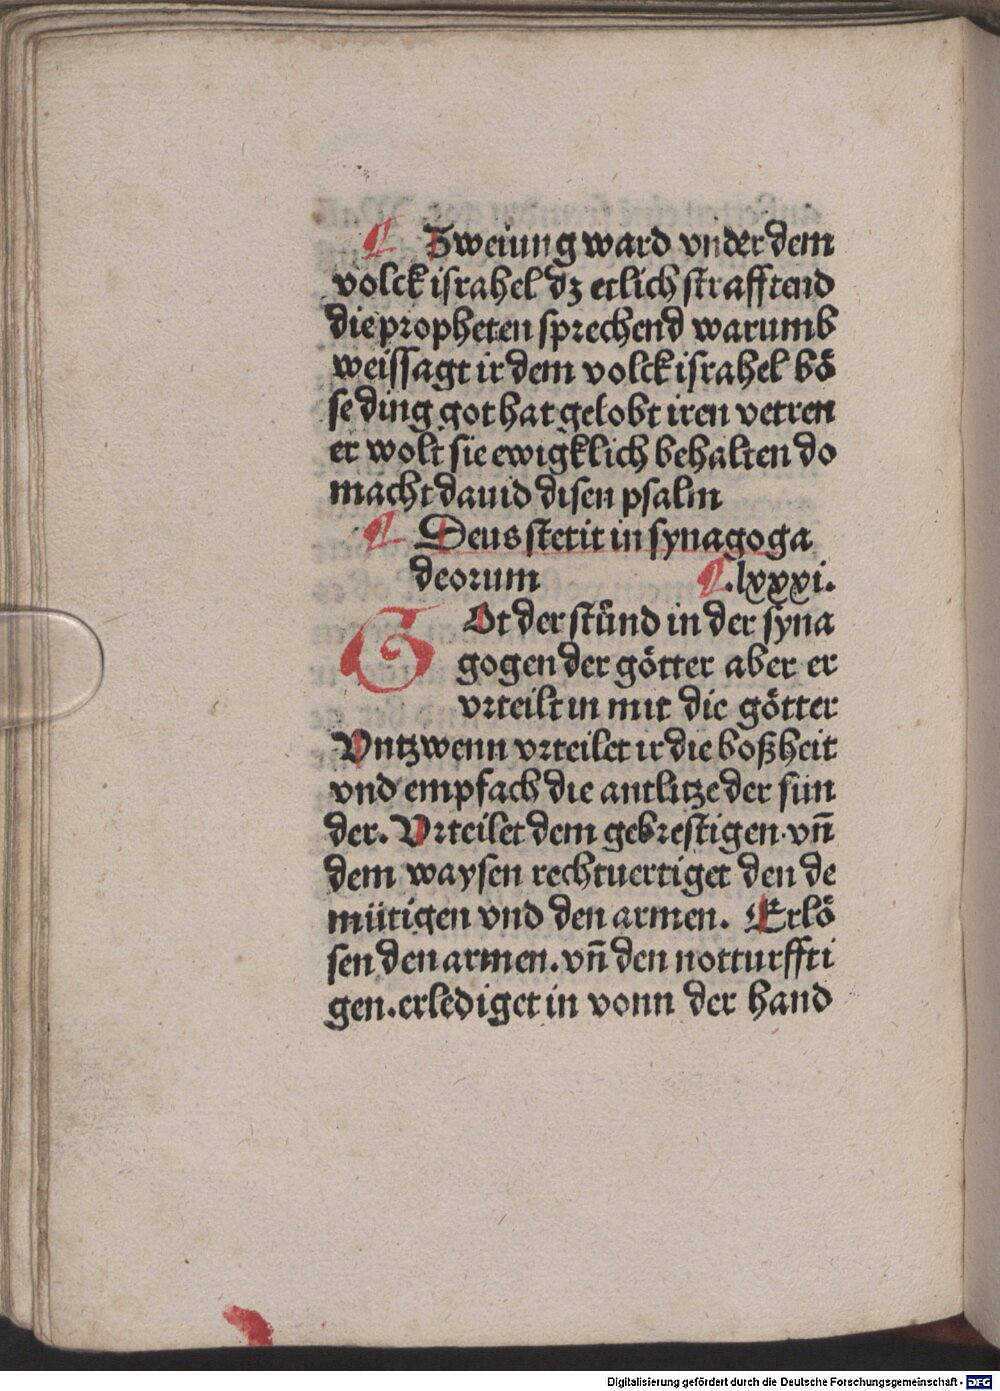 ¶ Zweiung ward vnder dem
volck israhel dz etlich strafftend
die propheten sprechend warumb
weissagt ir dem volck israhel bö
se ding got hat gelobt iren vetren
er wolt sie ewigklich behalten do
macht dauid disen psalm
¶ Deus stetit in synagoga
deorum ¶ .lxxxi.
GOt der stůnd in der syna
gogen der götter aber er
vrteilt in mit die götter
Vntz wenn vrteilet ir die boßheit
vnd empfach die antlitze der sün
der. Vrteilet dem gebrestigen vñ
dem waysen rechtuertiget den de
mütigen vnd den armen. Erlö
sen den armen. vñ den notturffti
gen. erlediget in vonn der hand
Digitalisierung gefördert durch die Deutsche Forschungsgemeinschaft - DFG